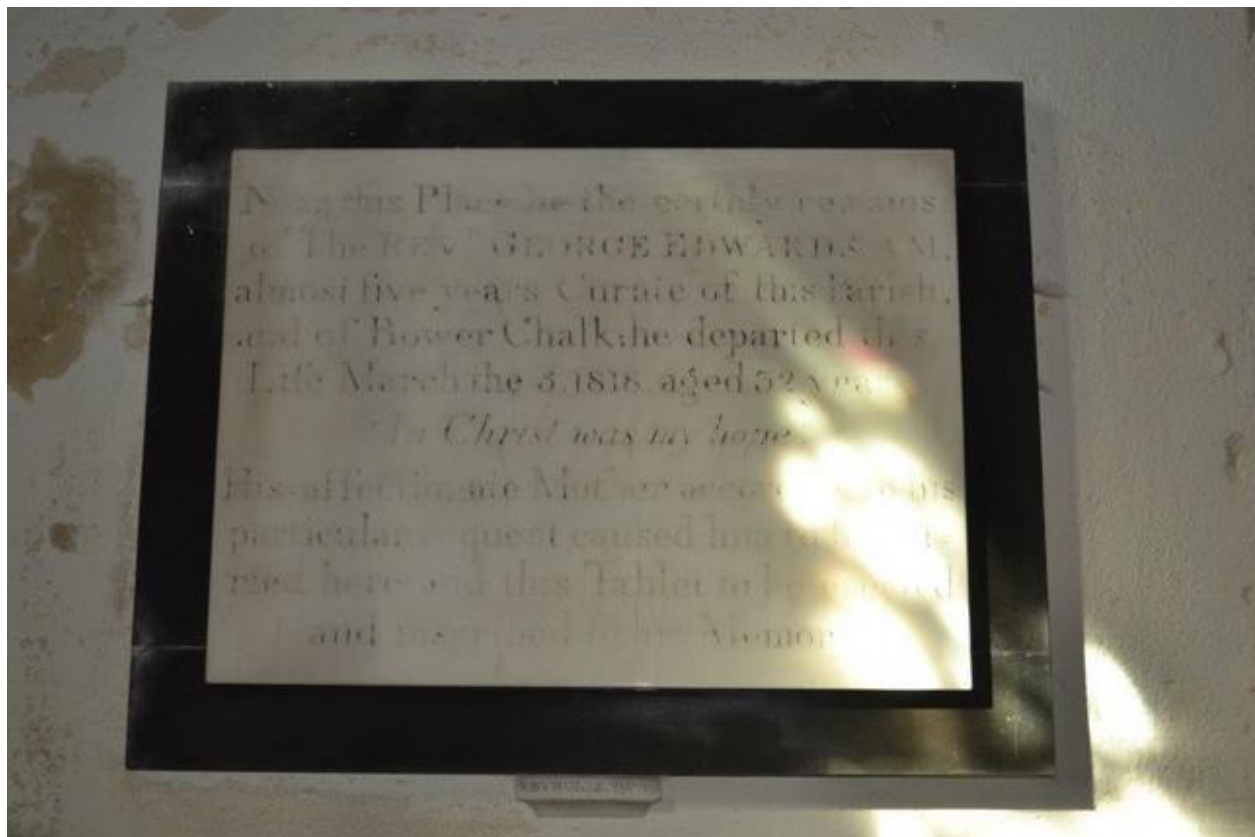 Near this Place lie the earthly remains
of The REV.D GEORGE EDWARDS A.M.
almost five years Curate of this Parish,
and of Bower Chalk; he departed this
Life March the 3, 1818, aged 32 years
In Christ was my hope
His affectionate Mother according to his
particular request caused him to be
and this Tablet to be erected
and inscribed to his Memory